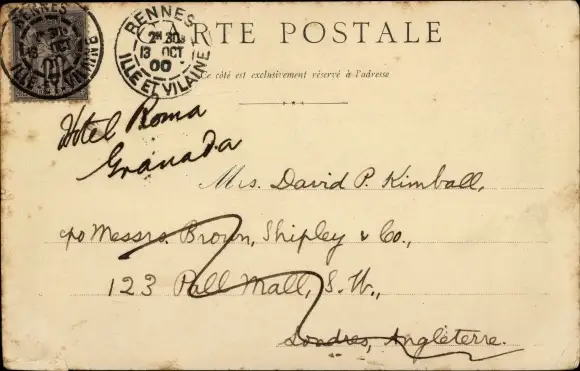 CARTE POSTALE
Ce côté est exclusivement réservé à l'adresse
RENNES
2E 30S
13 OCT
00
ILLE ET VILAINE
RENNES
30S
13 OCT
00
ILLE ET VILAINE
Hotel Roma
Granada
Mrs. David P. Kimball,
c/o Messrs. Brown, Shipley & Co.,
123 Pall Mall, S.W.,
Londres, Angleterre.